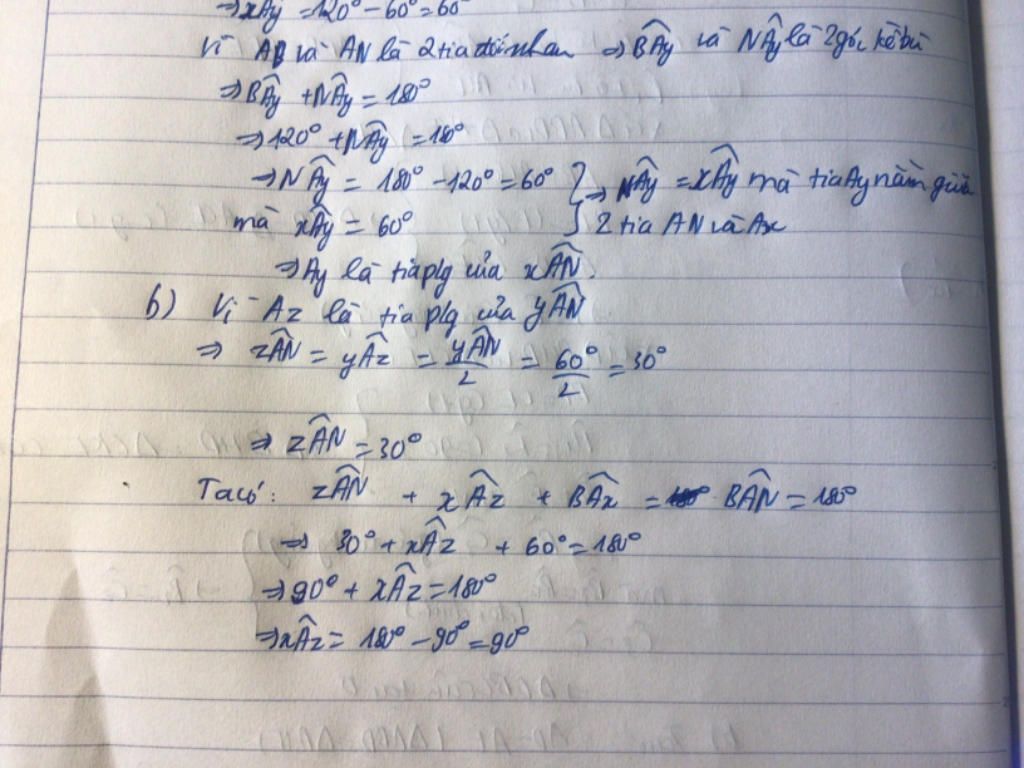 ⇒ xÂy = 120° - 60° = 60°
Vì AB và AN là 2 tia đối nhau ⇒ BÂy và NÂy là 2 góc kề bù
⇒ BÂy + NÂy = 180°
⇒ 120° + NÂy = 180°
⇒ NÂy = 180° - 120° = 60° } ⇒ NÂy = xÂy mà tia Ay nằm giữa
mà xÂy = 60° } 2 tia AN và Ax
⇒ Ay là tia plg của xÂN.
b) Vì Az là tia plg của yÂN
⇒ zÂN = yÂz = yÂN/2 = 60°/2 = 30°
⇒ zÂN = 30°
Ta có: zÂN + xÂz + BÂx = BÂN = 180°
⇒ 30° + xÂz + 60° = 180°
⇒ 90° + xÂz = 180°
⇒ xÂz = 180° - 90° = 90°